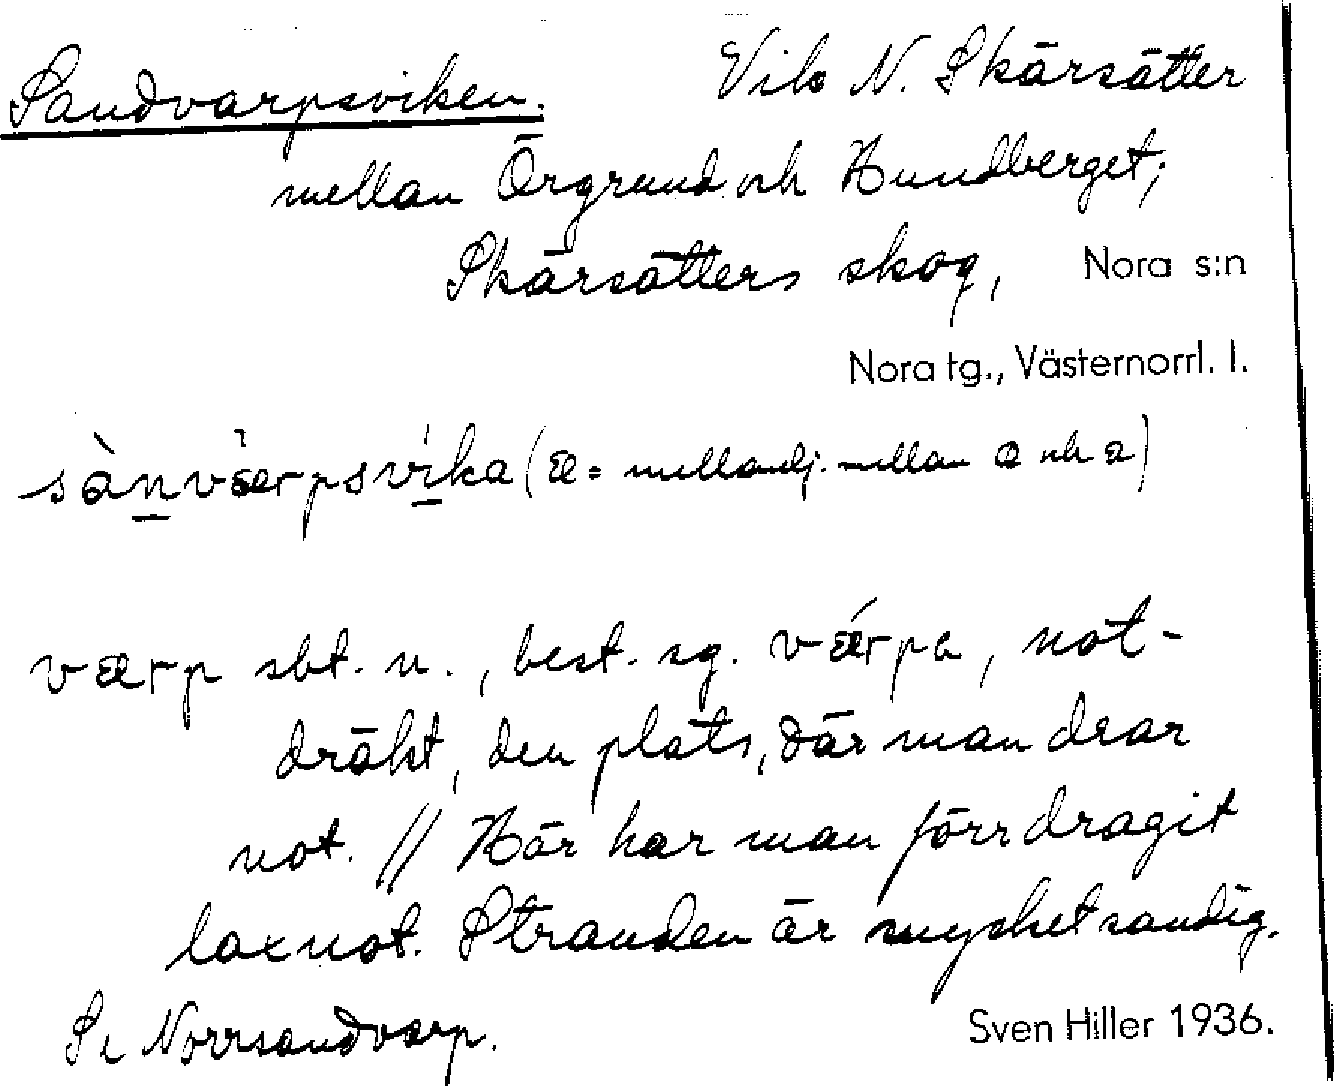 Sandvarpsviken. Vik N. Skärsätter
mellan Örgrund och Hundberget;
Skärsätters skog, Nora s:n
Nora tg., Västernorrl. l.
sànvæ̀rpsvı̀ka (æ = mellanlj. mellan a och ä)
værp sbt. n., best. sg. vǽrpa, not-
dräkt, den plats, där man drar
not. // Här har man förr dragit
laxnot. Stranden är mycket sandig.
Se Norrsandvarp. Sven Hiller 1936.